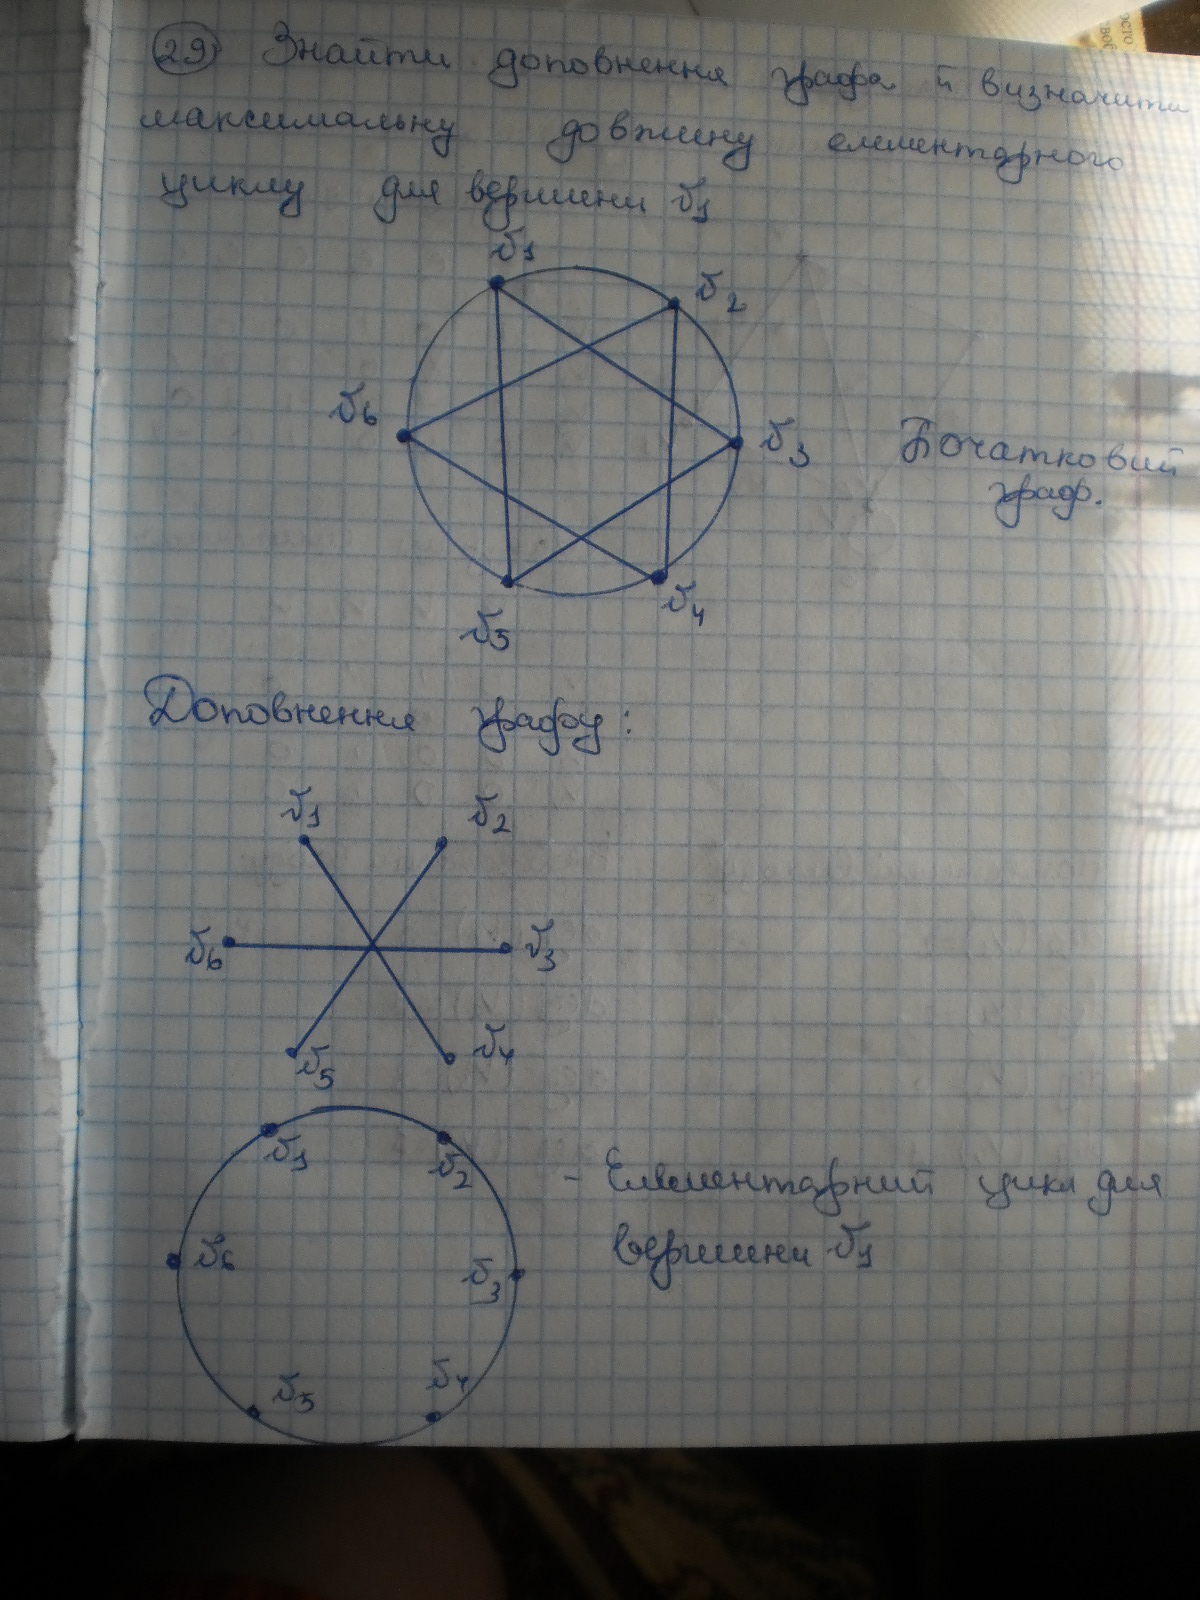 29 Знайти доповнення графа й визначити
максимальну довжину елементарного
циклу для вершини V1
V1
V2
V6
V3
Початковий
граф.
V4
V5
Доповнення графу:
V1
V2
V6
V3
V4
V5
V1
V2
- Елементарний цикл для
вершини V1
V6
V3
V4
V5